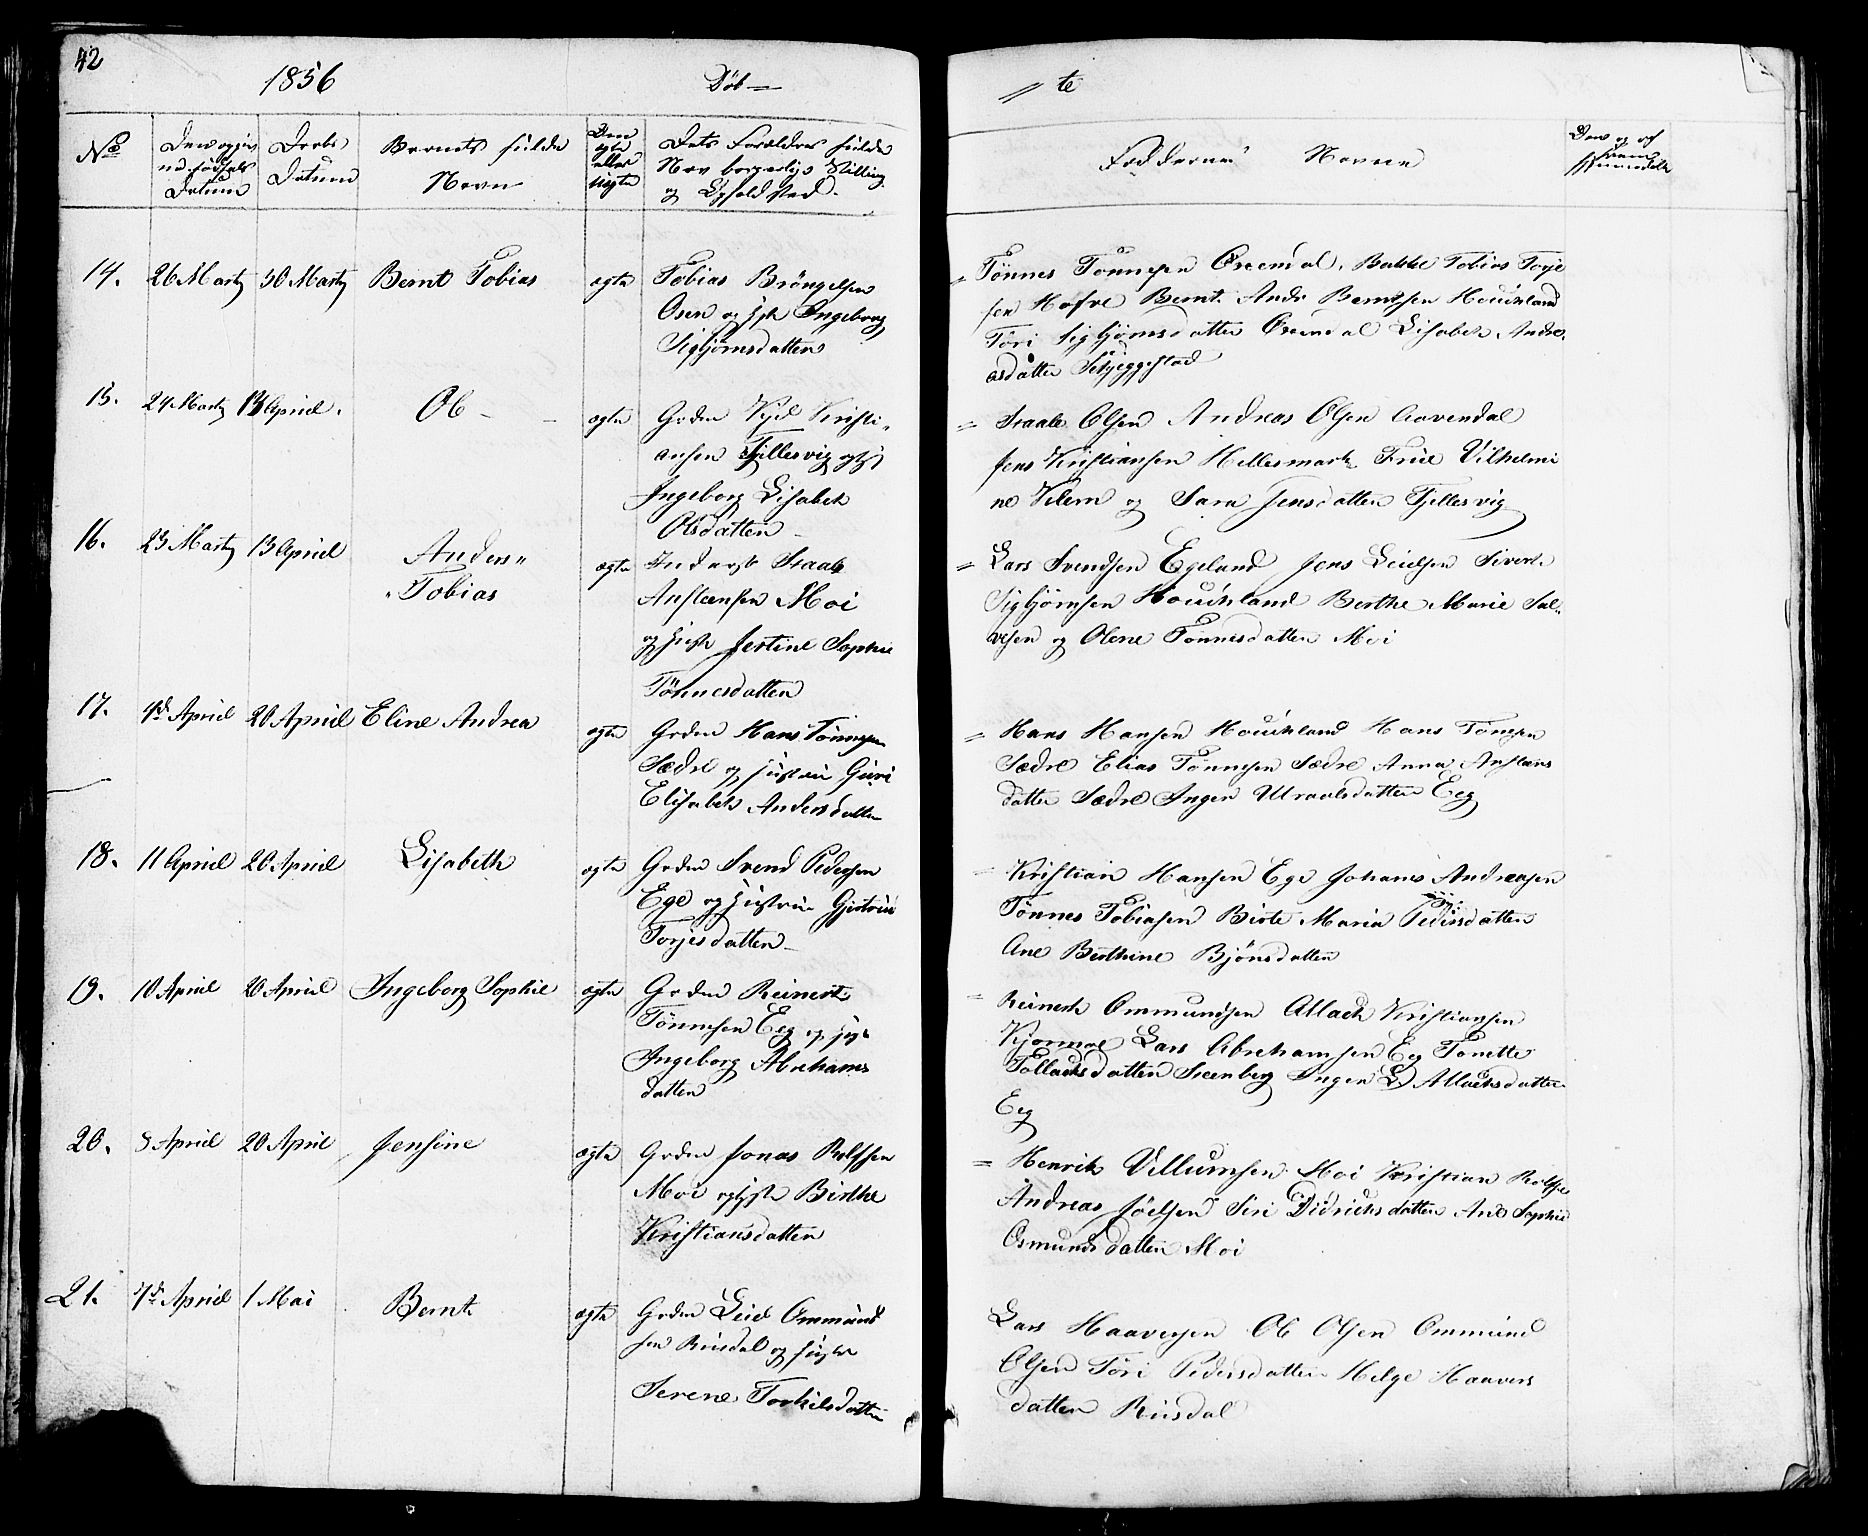 42
1856
Døb-
te
No
Datum
Daabs
Datum
Barnets fulde
Navn
Den
ægte
eller
uægte
Dets Forældres fulde
Nav borgerlige Stilling
og Opholdsted.
Faddernes Navne
14. 26 Marts 30 Marts Bernt Tobias ægte Tobias Bröngelsen
Osen og Ingeborg
Sigbjørnsdatter
Tønnes Tønnesen Øreendal, Bakke Tobias Torje
sen Hafve Bernt Andr Berntsen Houkland
Töri Sigbjørnsdatter Øreendal Lisabeth Andre
asdatter Skjeggestad
15. 24 Marts 13 Apriel. Ob - ægte Grdm Kjel Kristi
ansen Fjellesvig
Ingeborg Lisabeth
Olsdatter
Staale Olsen Andreas Olsen Aavendal
Jens Kristiansen Hellesmark Frue Vilhelmi
ne Klem og Sara Jensdatter Fjellesvig
16. 23 Marts 13 Apriel Anders
Tobias
ægte Inderst Staale
Anstensen Moi
og Jertine Sophie
Tönnesdatter
Lars Svendsen Egeland Jens Leielsen Sivert
Sigbjørnsen Houkland Berthe Marie Sal
vesen og Olene Tönnesdatter Moi
17. 4de Apriel 20 Apriel Eline Andrea ægte Grdm Hans Tönnesen
Sædre og hustrue Guri
Elisabeth Andersdatter
Hans Hansen Houkland Hans Tönesen
Sædre Elias Tönnesen Sædre Anna Anstens
datter Sædre Inger Alraalsdatter Eeg
18. 11 Apriel 20 Apriel Lisabeth ægte Grdm Svend Pedersen
Ege og hustrue Gjertrue
Torjesdatter
Kristian Hansen Ege Johanes Andreasen
Tönnes Tobiasen Birte Maria Pedersdatter
Ane Berthine Bjönsdatter
19. 10 Apriel 20 Apriel Ingeborg Sophie ægte Grdm Reinert
Tönnesen Eeg og
Ingeborg Abrahams
datter
Reinert Ommundsen Atlack Kristiansen
Kjormoe Lars Abrehamsen Eeg Tonette
Tollacksdatter Steenberg Inger L Atlacksdatter
Eeg
20. 8 Apriel 20 April Jensine ægte Grdm Jonas Rolfsen
Moi og Birthe
Kristiansdatter
Henrik Villumsen Moi Kristian Rolfsen
Andreas Joelsen Siri Didrichsdatter Ane Sophie
Osmundsdatter Moi
21. 7de Apriel 1 Mai Bernt ægte Grdm Leiel Ommund
sen Rusdal og hustrue
Serene Torkilsdatter
Lars Haaversen Ob Olsen Ommund
Olsen Töri Pedersdatter Helge Haavers
datter Rusdal